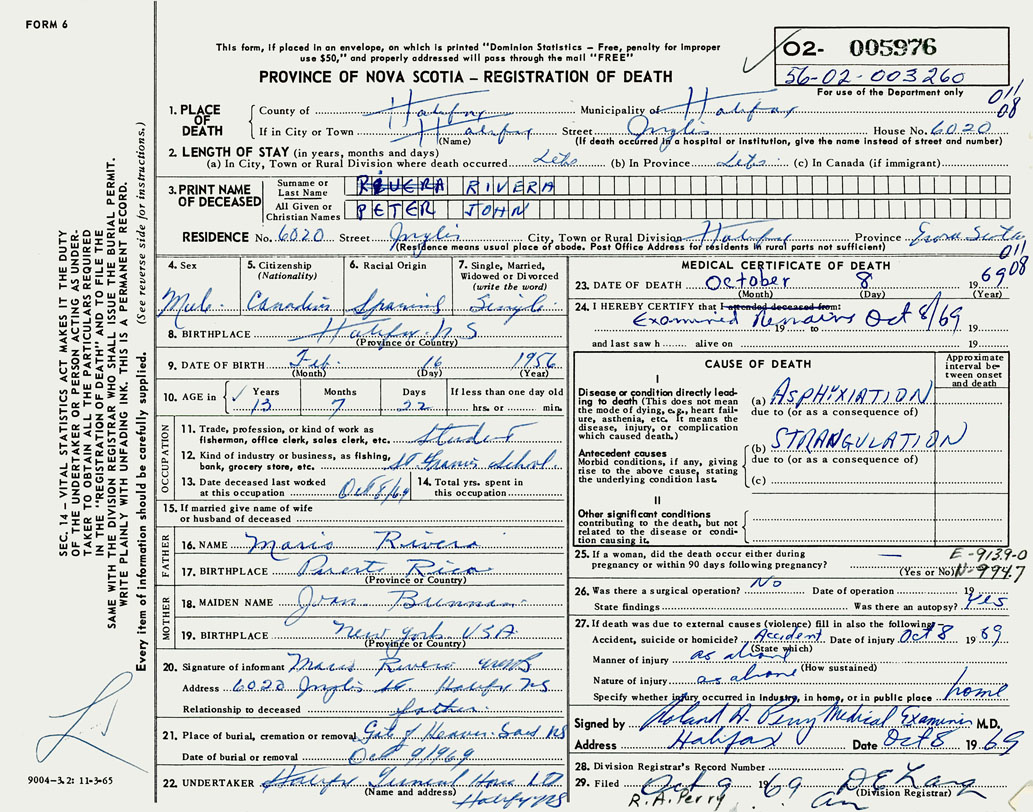 FORM 6
This form, if placed in an envelope, on which is printed "Dominion Statistics – Free, penalty for improper
use $50," and properly addressed will pass through the mail "FREE"
PROVINCE OF NOVA SCOTIA – REGISTRATION OF DEATH
O2- 005976
56-02-003260
For use of the Department only
011
08
1. PLACE OF DEATH
County of Halifax Municipality of Halifax
If in City or Town Halifax Street Inglis House No. 6020
(Name) (If death occurred in a hospital or institution, give the name instead of street and number)
2. LENGTH OF STAY (in years, months and days)
(a) In City, Town or Rural Division where death occurred Life (b) In Province Life (c) In Canada (if immigrant)
3. PRINT NAME OF DECEASED
Surname or Last Name RIVERA
All Given or Christian Names PETER JOHN
RESIDENCE No. 6020 Street Inglis City, Town or Rural Division Halifax Province Nova Scotia
(Residence means usual place of abode. Post Office Address for residents in rural parts not sufficient)
011
08
4. Sex Male
5. Citizenship (Nationality) Canadian
6. Racial Origin Spanish
7. Single, Married, Widowed or Divorced (write the word) Single
8. BIRTHPLACE Halifax N S
(Province or Country)
9. DATE OF BIRTH Feb 16 1956
(Month) (Day) (Year)
10. AGE in Years Months Days If less than one day old
13 7 22 hrs. or min.
OCCUPATION
11. Trade, profession, or kind of work as
fisherman, office clerk, sales clerk, etc. Student
12. Kind of industry or business, as fishing,
bank, grocery store, etc. St Francis School
13. Date deceased last worked
at this occupation Oct 8/69
14. Total yrs. spent in
this occupation
15. If married give name of wife
or husband of deceased
FATHER
16. NAME Mario Rivera
17. BIRTHPLACE Puerto Rico
(Province or Country)
MOTHER
18. MAIDEN NAME Joan Brennan
19. BIRTHPLACE New York USA
(Province or Country)
20. Signature of informant Mario Rivera
Address 6020 Inglis St. Halifax NS
Relationship to deceased father
21. Place of burial, cremation or removal Gate of Heaven Sack NS
Date of burial or removal Oct 9 1969
22. UNDERTAKER Halifax Funeral Home LTD
(Name and address) Halifax NS
MEDICAL CERTIFICATE OF DEATH
23. DATE OF DEATH October 8 1969
(Month) (Day) (Year)
24. I HEREBY CERTIFY that I attended deceased from:
Examined Remains Oct 8/69
19 to 19
and last saw h alive on 19
CAUSE OF DEATH
Approximate interval between onset and death
I
Disease or condition directly leading to death (This does not mean the mode of dying, e.g., heart failure, asthenia, etc. It means the disease, injury, or complication which caused death.)
(a) ASPHYXIATION
due to (or as a consequence of)
Antecedent causes
Morbid conditions, if any, giving rise to the above cause, stating the underlying condition last.
(b) STRANGULATION
due to (or as a consequence of)
(c)
II
Other significant conditions
contributing to the death, but not related to the disease or condition causing it.
25. If a woman, did the death occur either during
pregnancy or within 90 days following pregnancy? —
(Yes or No)
E-9139-0
N-994.7
26. Was there a surgical operation? No Date of operation 19
State findings Was there an autopsy? Yes
27. If death was due to external causes (violence) fill in also the following
Accident, suicide or homicide? Accident Date of injury Oct 8 1969
(State which)
Manner of injury as above
(How sustained)
Nature of injury as above
Specify whether injury occurred in Industry, in home, or in public place home
Signed by Roland A. Perry Medical Examiner M.D.
Address Halifax Date Oct 8 1969
28. Division Registrar's Record Number
29. Filed Oct 9 1969 D E Lang
(Division Registrar)
R.A. Perry
SEC. 14 – VITAL STATISTICS ACT MAKES IT THE DUTY
OF THE UNDERTAKER OR PERSON ACTING AS UNDER-
TAKER TO OBTAIN ALL THE PARTICULARS REQUIRED
IN THE "REGISTRATION OF DEATH" AND TO FILE THE
SAME WITH THE DIVISION REGISTRAR WHO SHALL ISSUE THE BURIAL PERMIT.
WRITE PLAINLY WITH UNFADING INK. THIS IS A PERMANENT RECORD.
Every item of information should be carefully supplied. (See reverse side for instructions.)
9004-3.2: 11-3-65